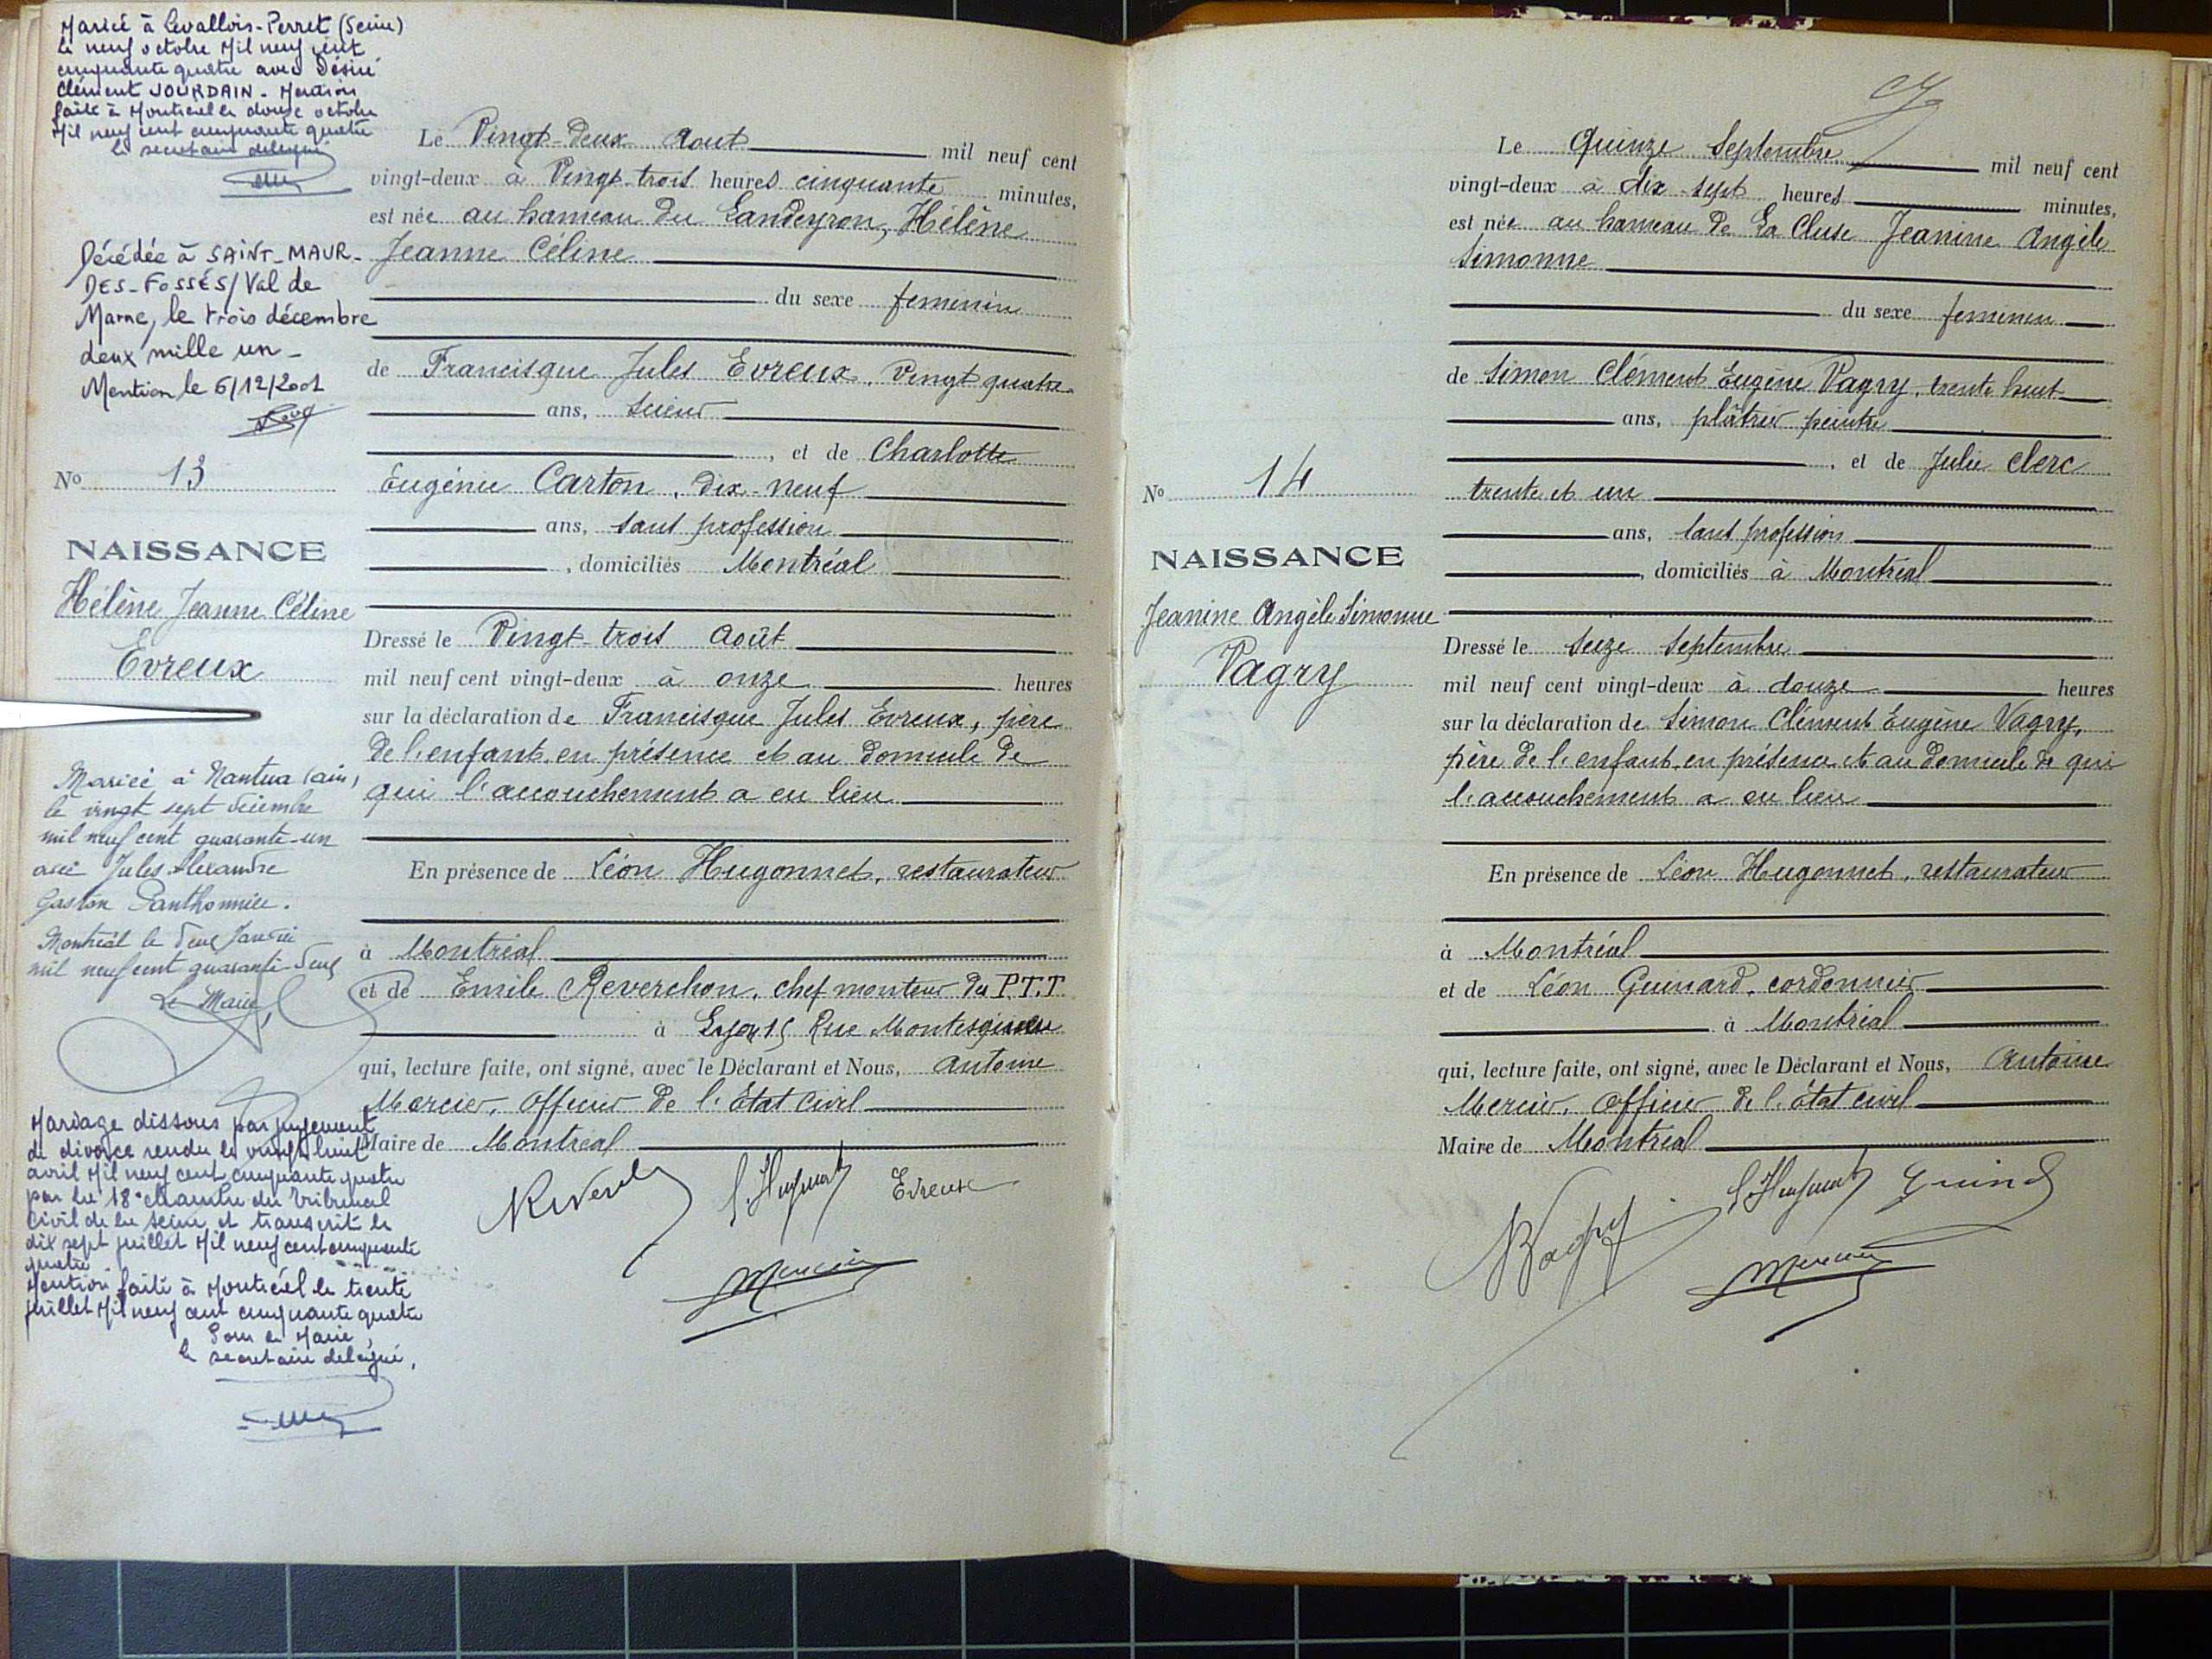 Mariée à Levallois-Perret (Seine)
le neuf octobre Mil neuf cent
cinquante quatre avec Désiré
Clément JOURDAIN - Mention
faite à Montréal le douze octobre
Mil neuf cent cinquante quatre
le secrétaire délégué
Décédée à SAINT-MAUR-
DES-FOSSÉS/Val de
Marne, le trois décembre
deux mille un -
Mention le 6/12/2001
No 13
NAISSANCE
Hélène Jeanne Céline
Evreux
Mariée à Nantua (ain)
le vingt sept décembre
mil neuf cent quarante-un
avec Jules Alexandre
Gaston Panthonnier.
Montréal le deux Janvier
mil neuf cent quarante-deux
Le Maire,
Mariage dissous par jugement
de divorce rendu le vingt huit
avril Mil neuf cent cinquante quatre
par la 18e chambre du Tribunal
Civil de la Seine et transcrit le
dix sept juillet Mil neuf cent cinquante
quatre
Mention faite à Montréal le trente
juillet Mil neuf cent cinquante quatre
Pour le Maire,
le secrétaire délégué,
Le Vingt-deux Aout mil neuf cent
vingt-deux à Vingt-trois heures cinquante minutes,
est née au hameau du Landeyron, Hélène
Jeanne Céline
du sexe feminin
de Francisque Jules Evreux, Vingt quatre
ans, scieur
, et de Charlotte
Eugénie Carton, dix-neuf
ans, sans profession
, domiciliés Montréal
Dressé le Vingt-trois Août
mil neuf cent vingt-deux à onze heures
sur la déclaration de Francisque Jules Evreux, père
de l'enfant, en présence et au domicile de
qui l'accouchement a eu lieu
En présence de Léon Hugonnet, restaurateur
à Montréal
et de Emile Reverchon, chef monteur des P.T.T
à Lyon 15 Rue Montesquieu
qui, lecture faite, ont signé, avec le Déclarant et Nous, Antoine
Mercier, Officier de l'Etat Civil
Maire de Montréal
L. Hugonnet Evreux
Mercier
Le Quinze Septembre mil neuf cent
vingt-deux à dix-sept heures minutes,
est née au hameau de La Cluse Jeanine Angèle
Simonne
du sexe feminin
de Simon Clément Eugène Vagry, trente huit
ans, plâtrier peintre
, et de Julie Clerc
trente et un
ans, sans profession
, domiciliés à Montréal
No 14
NAISSANCE
Jeanine Angèle Simonne
Vagry
Dressé le seize septembre
mil neuf cent vingt-deux à douze heures
sur la déclaration de Simon Clément Eugène Vagry,
père de l'enfant, en présence et au domicile de qui
l'accouchement a eu lieu
En présence de Léon Hugonnet, restaurateur
à Montréal
et de Léon Guinard, cordonnier
à Montréal
qui, lecture faite, ont signé, avec le Déclarant et Nous, Antoine
Mercier, Officier de l'Etat civil
Maire de Montréal
Vagry L. Hugonnet Guinard
Mercier